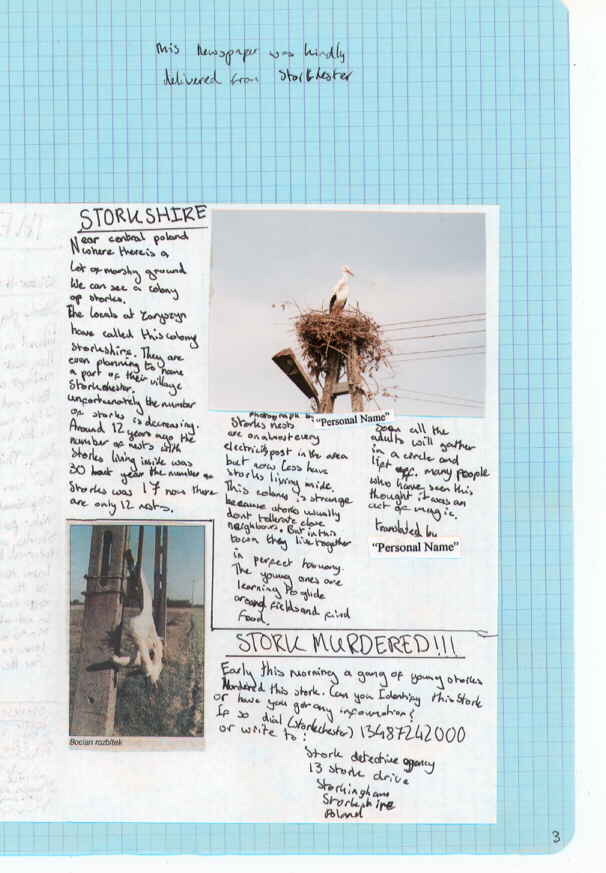 This Newspaper was kindly
delivered from Storkhester
STORKSHIRE
Near central poland
where there is a
Lot of marshy ground
We can see a colony
of storks.
The locals at
have called this colony
Storkshire. They are
even planning to name
a part of their village
Storkchester.
unfortunately the number
of storks is decreasing.
Around 12 years ago the
number of nests with
Storks living inside was
30 last year the number of
Storks was 17 now there
are only 12 nests.
Photograph by
"Personal Name"
Storks nests
are on almost every
electricity post in the area
but now less have
storks living inside.
This colony is strange
because storks usually
dont tollerate close
neighbours. But in this
town they live together
in perfect harmony.
The young ones are
learning to glide
around fields and find
food.
Soon all the
adults will gather
in a circle and
lift off. many people
who have seen this
thought it was an
act of magic.
translated by
"Personal Name"
Bocian rozbitek
STORK MURDERED!!!
Early this morning a gang of young storks
Murdered this stork. Can you Identify this Stork
or have you got any information?
If so dial (Storkchester) 13487242000
or write to:
Stork detective agency
13 stork drive
Storkingham
Storkshire
Poland
3